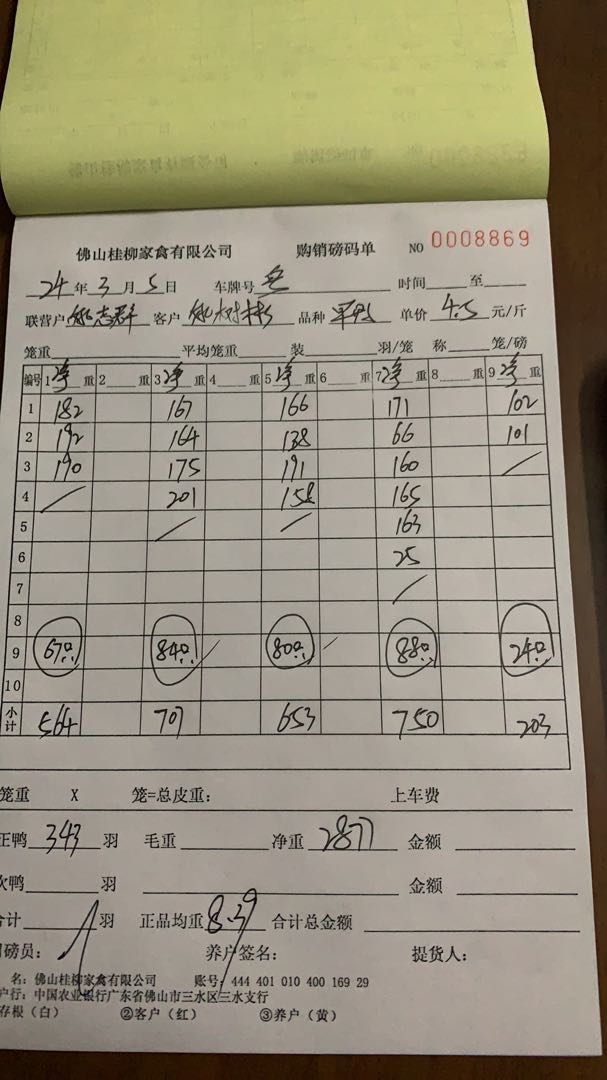 佛山桂柳家禽有限公司 购销磅码单 NO 0008869
24 年 3 月 5 日 车牌号 时间 至
联营户 客户 品种 单价 4.5 元/斤
笼重 平均笼重 装 羽/笼 称 笼/磅
编号 1 净 重 2 重 3 净 重 4 重 5 净 重 6 重 7 净 重 8 重 9 净 重
1 182 167 166 171 102
2 192 164 138 66 101
3 190 175 191 160
4 201 158 165
5 163
6 25
7
8
9 67只 84只 80只 88只 24只
10
小计 564 707 653 750 203
笼重 X 笼=总皮重: 上车费
正鸭 343 羽 毛重 净重 2877 金额
次鸭 羽 金额
合计 羽 正品均重 8.39 合计总金额
司磅员: 养户签名: 提货人:
名: 佛山桂柳家禽有限公司 账号: 444 401 010 400 169 29
户行: 中国农业银行广东省佛山市三水区三水支行
存根（白） ②客户（红） ③养户（黄）